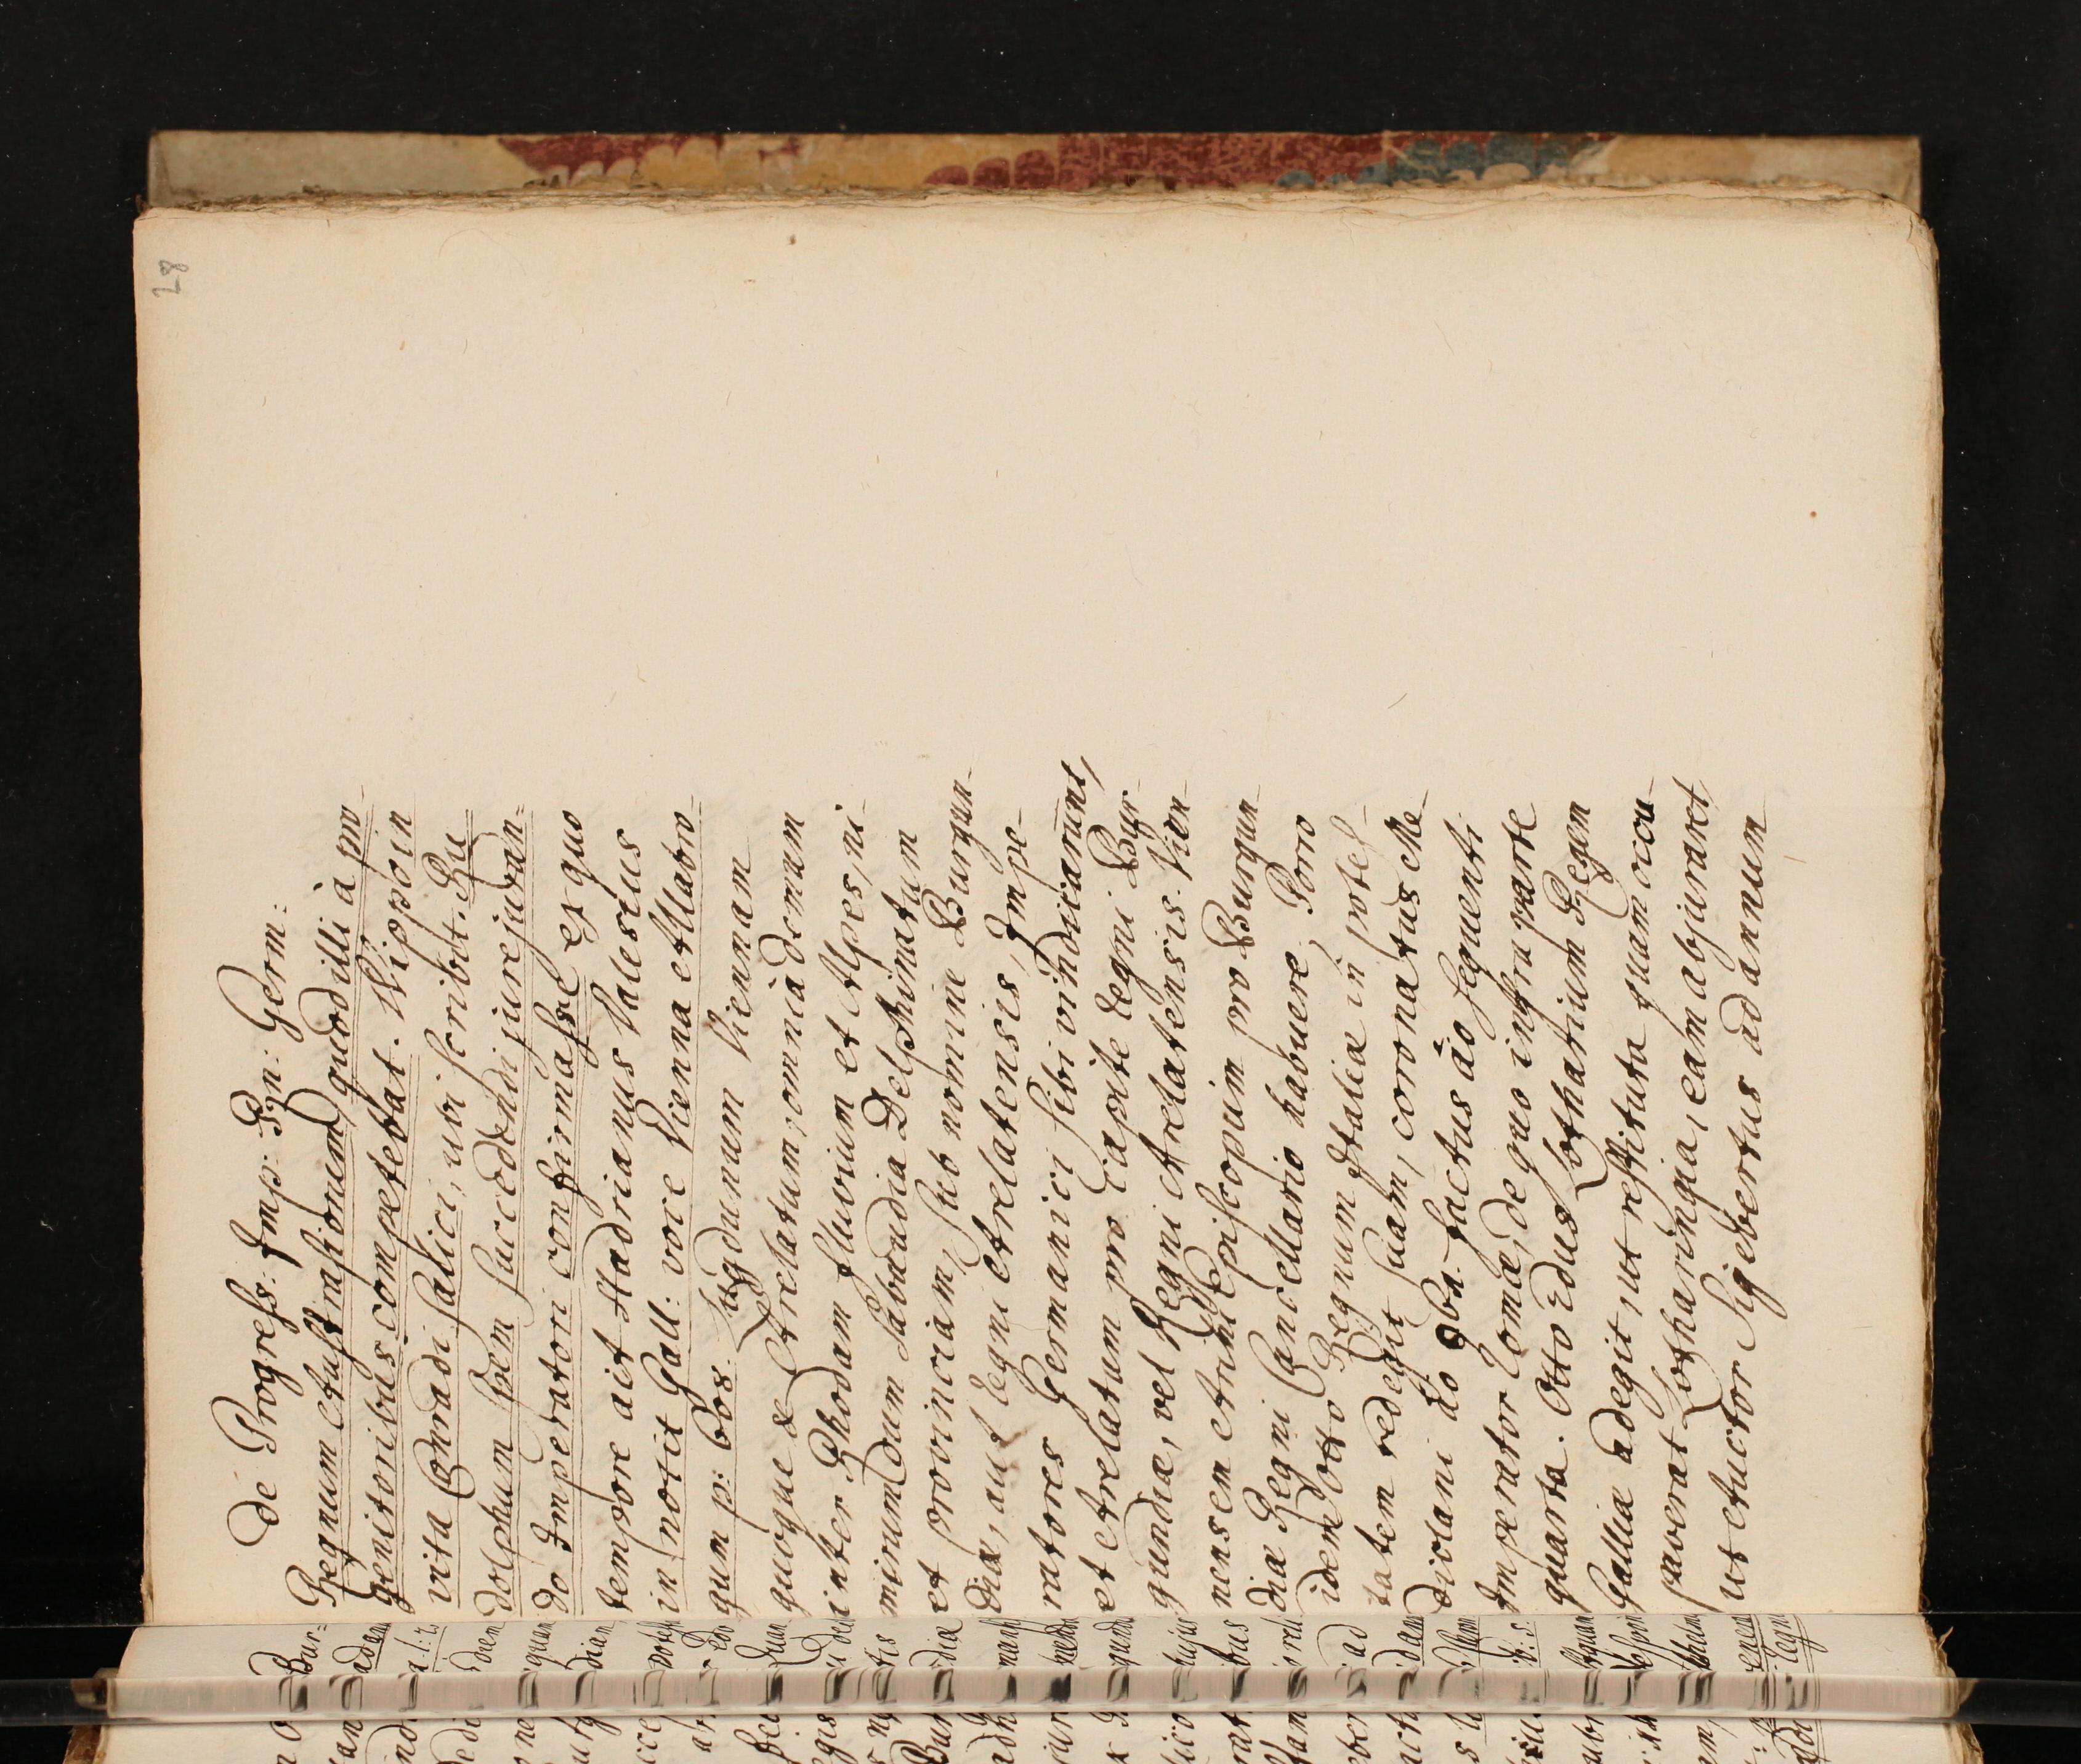 28
de Progress: Imp: Rn: Germ:
Regnum Austrasiorum, quod illi à pro-
genitoribus competebat. Wippo in
vita Conradi Salici, ubi scribit. Ru
dolphum spem succedendi jurejuran-
do Imperatori confirmasse ex quo
tempore ait Hadrianus Valesius
in notit Gall: voce Vienna et Allabro-
gum p: 608. Lugdunum Viennam
quoque & Arelatum, omnia demum
inter Rhodam fluvium et Alpes, ni-
mirum cum Sabaudia Delphinatum
et provinciam, sub nomine Burgun-
diæ, aut Regni Arelatensis, Impe-
ratores Germanici sibi vindicarunt,
et Arelatum pro capite Regni Bur-
gundiæ, vel Regni Arelatensis. Vien-
nensem Archiepiscopum pro Burgun
diæ Regni Cancellario habuere. Porro
idem Otto Regnum Italiæ in potes-
tatem redegit suam, coronatus Me
diolani do 961. factus aõ sequenti
Imperator Romæ, de quo infra parte
quarta. Otto 2dus Lotharium Regem
Galliæ adegit, ut restituta quam occu
paverat Lotharingia, eam abjuraret,
ut Auctor Sigebertus ad annum